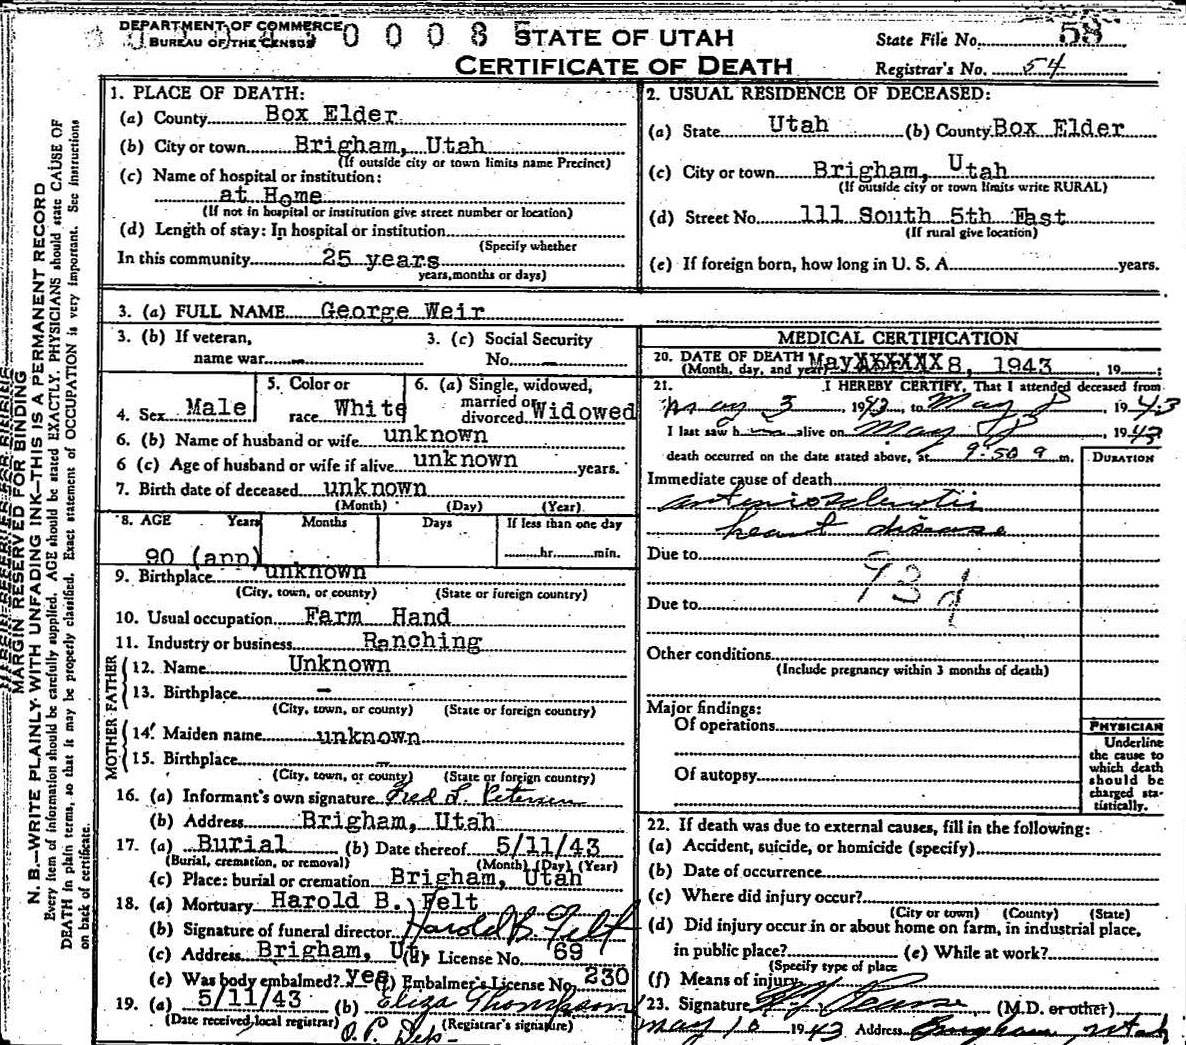 DEPARTMENT OF COMMERCE
BUREAU OF THE CENSUS
0 0 0 8 5
STATE OF UTAH
CERTIFICATE OF DEATH
State File No. 58
Registrar's No. 54
MARGIN RESERVED FOR BINDING
N. B.—WRITE PLAINLY WITH UNFADING INK—THIS IS A PERMANENT RECORD
Every item of information should be carefully supplied. AGE should be stated EXACTLY. PHYSICIANS should state CAUSE OF
DEATH in plain terms, so that it may be properly classified. Exact statement of OCCUPATION is very important. See instructions
on back of certificate.
1. PLACE OF DEATH:
(a) County Box Elder
(b) City or town Brigham, Utah
(If outside city or town limits name Precinct)
(c) Name of hospital or institution:
at Home
(If not in hospital or institution give street number or location)
(d) Length of stay: In hospital or institution
(Specify whether
In this community 25 years
years, months or days)
2. USUAL RESIDENCE OF DECEASED:
(a) State Utah (b) County Box Elder
(c) City or town Brigham, Utah
(If outside city or town limits write RURAL)
(d) Street No. 111 South 5th East
(If rural give location)
(e) If foreign born, how long in U. S. A. years.
3. (a) FULL NAME George Weir
3. (b) If veteran, 3. (c) Social Security
name war — No. —
4. Sex Male
5. Color or
race White
6. (a) Single, widowed,
married or
divorced Widowed
6. (b) Name of husband or wife unknown
6 (c) Age of husband or wife if alive unknown years.
7. Birth date of deceased unknown
(Month) (Day) (Year)
8. AGE Years Months Days If less than one day
90 (app) hr. min.
9. Birthplace unknown
(City, town, or county) (State or foreign country)
10. Usual occupation Farm Hand
11. Industry or business Ranching
FATHER
12. Name Unknown
13. Birthplace —
(City, town, or county) (State or foreign country)
MOTHER
14. Maiden name unknown
15. Birthplace —
(City, town, or county) (State or foreign country)
16. (a) Informant's own signature Fred L. Petersen
(b) Address Brigham, Utah
17. (a) Burial (b) Date thereof 5/11/43
(Burial, cremation, or removal) (Month) (Day) (Year)
(c) Place: burial or cremation Brigham, Utah
18. (a) Mortuary Harold B. Felt
(b) Signature of funeral director Harold B. Felt
(c) Address Brigham, Ut (d) License No. 69
(e) Was body embalmed? yes (f) Embalmer's License No. 230
19. (a) 5/11/43 (b) Eliza Thompson
(Date received local registrar) (Registrar's signature)
Dep-
MEDICAL CERTIFICATION
20. DATE OF DEATH May XXXXXX 8, 1943
(Month, day, and year) , 19 ;
21. I HEREBY CERTIFY, That I attended deceased from
May 3 1943, to May 8, 1943
I last saw him alive on May 8, 1943
death occurred on the date stated above, at 9:50 m.
DURATION
Immediate cause of death
arteriosclerotic
heart disease
Due to
93 d
Due to
Other conditions
(Include pregnancy within 3 months of death)
Major findings:
Of operations
Of autopsy
PHYSICIAN
Underline
the cause to
which death
should be
charged sta-
tistically.
22. If death was due to external causes, fill in the following:
(a) Accident, suicide, or homicide (specify)
(b) Date of occurrence
(c) Where did injury occur?
(City or town) (County) (State)
(d) Did injury occur in or about home on farm, in industrial place,
in public place? (e) While at work?
(Specify type of place
(f) Means of injury
23. Signature (M.D. or other)
May 10 1943 Address Brigham, Utah